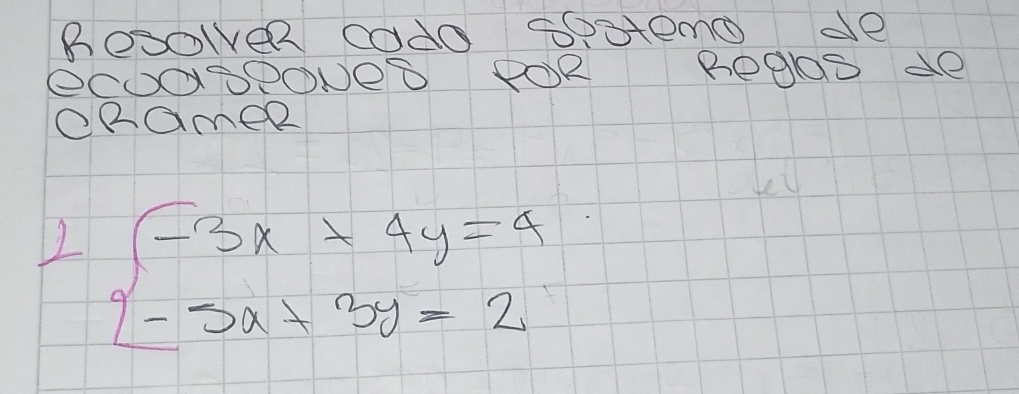 Resolver cada sistema de
ecuasiones por Reglas de
CRameR
1 { -3x + 4y = 4
-5x + 3y = 2